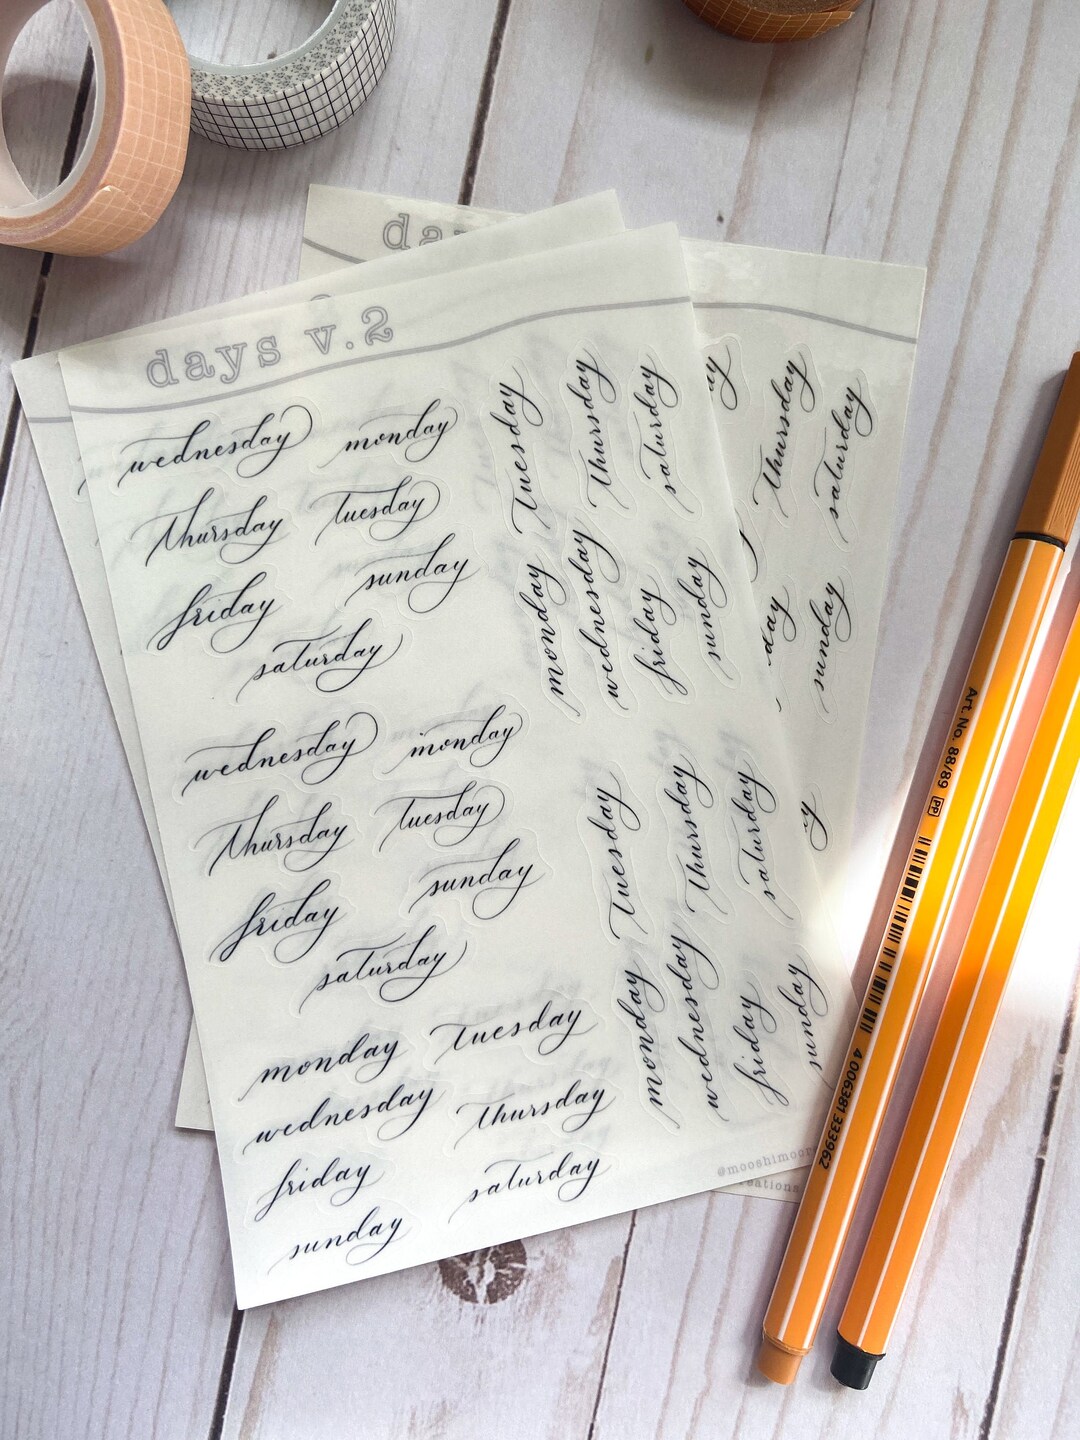 da
days v.2
wednesday monday
thursday tuesday
friday sunday
saturday
wednesday monday
thursday tuesday
friday sunday
saturday
monday tuesday
wednesday thursday
friday saturday
sunday
tuesday thursday saturday
monday wednesday friday sunday
tuesday thursday saturday
monday wednesday friday sunday
@mooshimoo
reations
ay thursday saturday
day sunday
y
Art. No. 88/89 PP
4 006381 333962